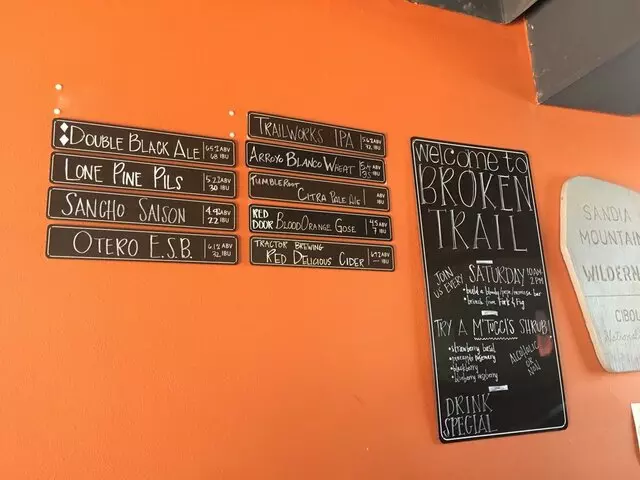 DOUBLE BLACK ALE 6.5% ABV
68 IBU
LONE PINE PILS 5.2% ABV
30 IBU
SANCHO SAISON 4.9% ABV
22 IBU
OTERO E.S.B. 6.1% ABV
32 IBU
TRAILWORKS IPA ABV
IBU
ARROYO BLANCO WHEAT ABV
IBU
TUMBLEROOT
CITRA PALE ALE ABV
IBU
RED
DOOR BLOOD ORANGE GOSE 4.5 ABV
7 IBU
TRACTOR BREWING
RED DELICIOUS CIDER ABV
IBU
WELCOME TO
BROKEN
TRAIL
JOIN
US EVERY SATURDAY 10AM-
2PM
• build a bloody/ mimosa bar
• brunch from Fork & Fig
TRY A M'TUCCI'S SHRUB!
• strawberry basil
• pineapple rosemary
• blackberry
• blueberry
ALCOHOLIC
OR
NON
DRINK
SPECIAL
SANDIA
MOUNTAIN
WILDERN
CIBOL
National